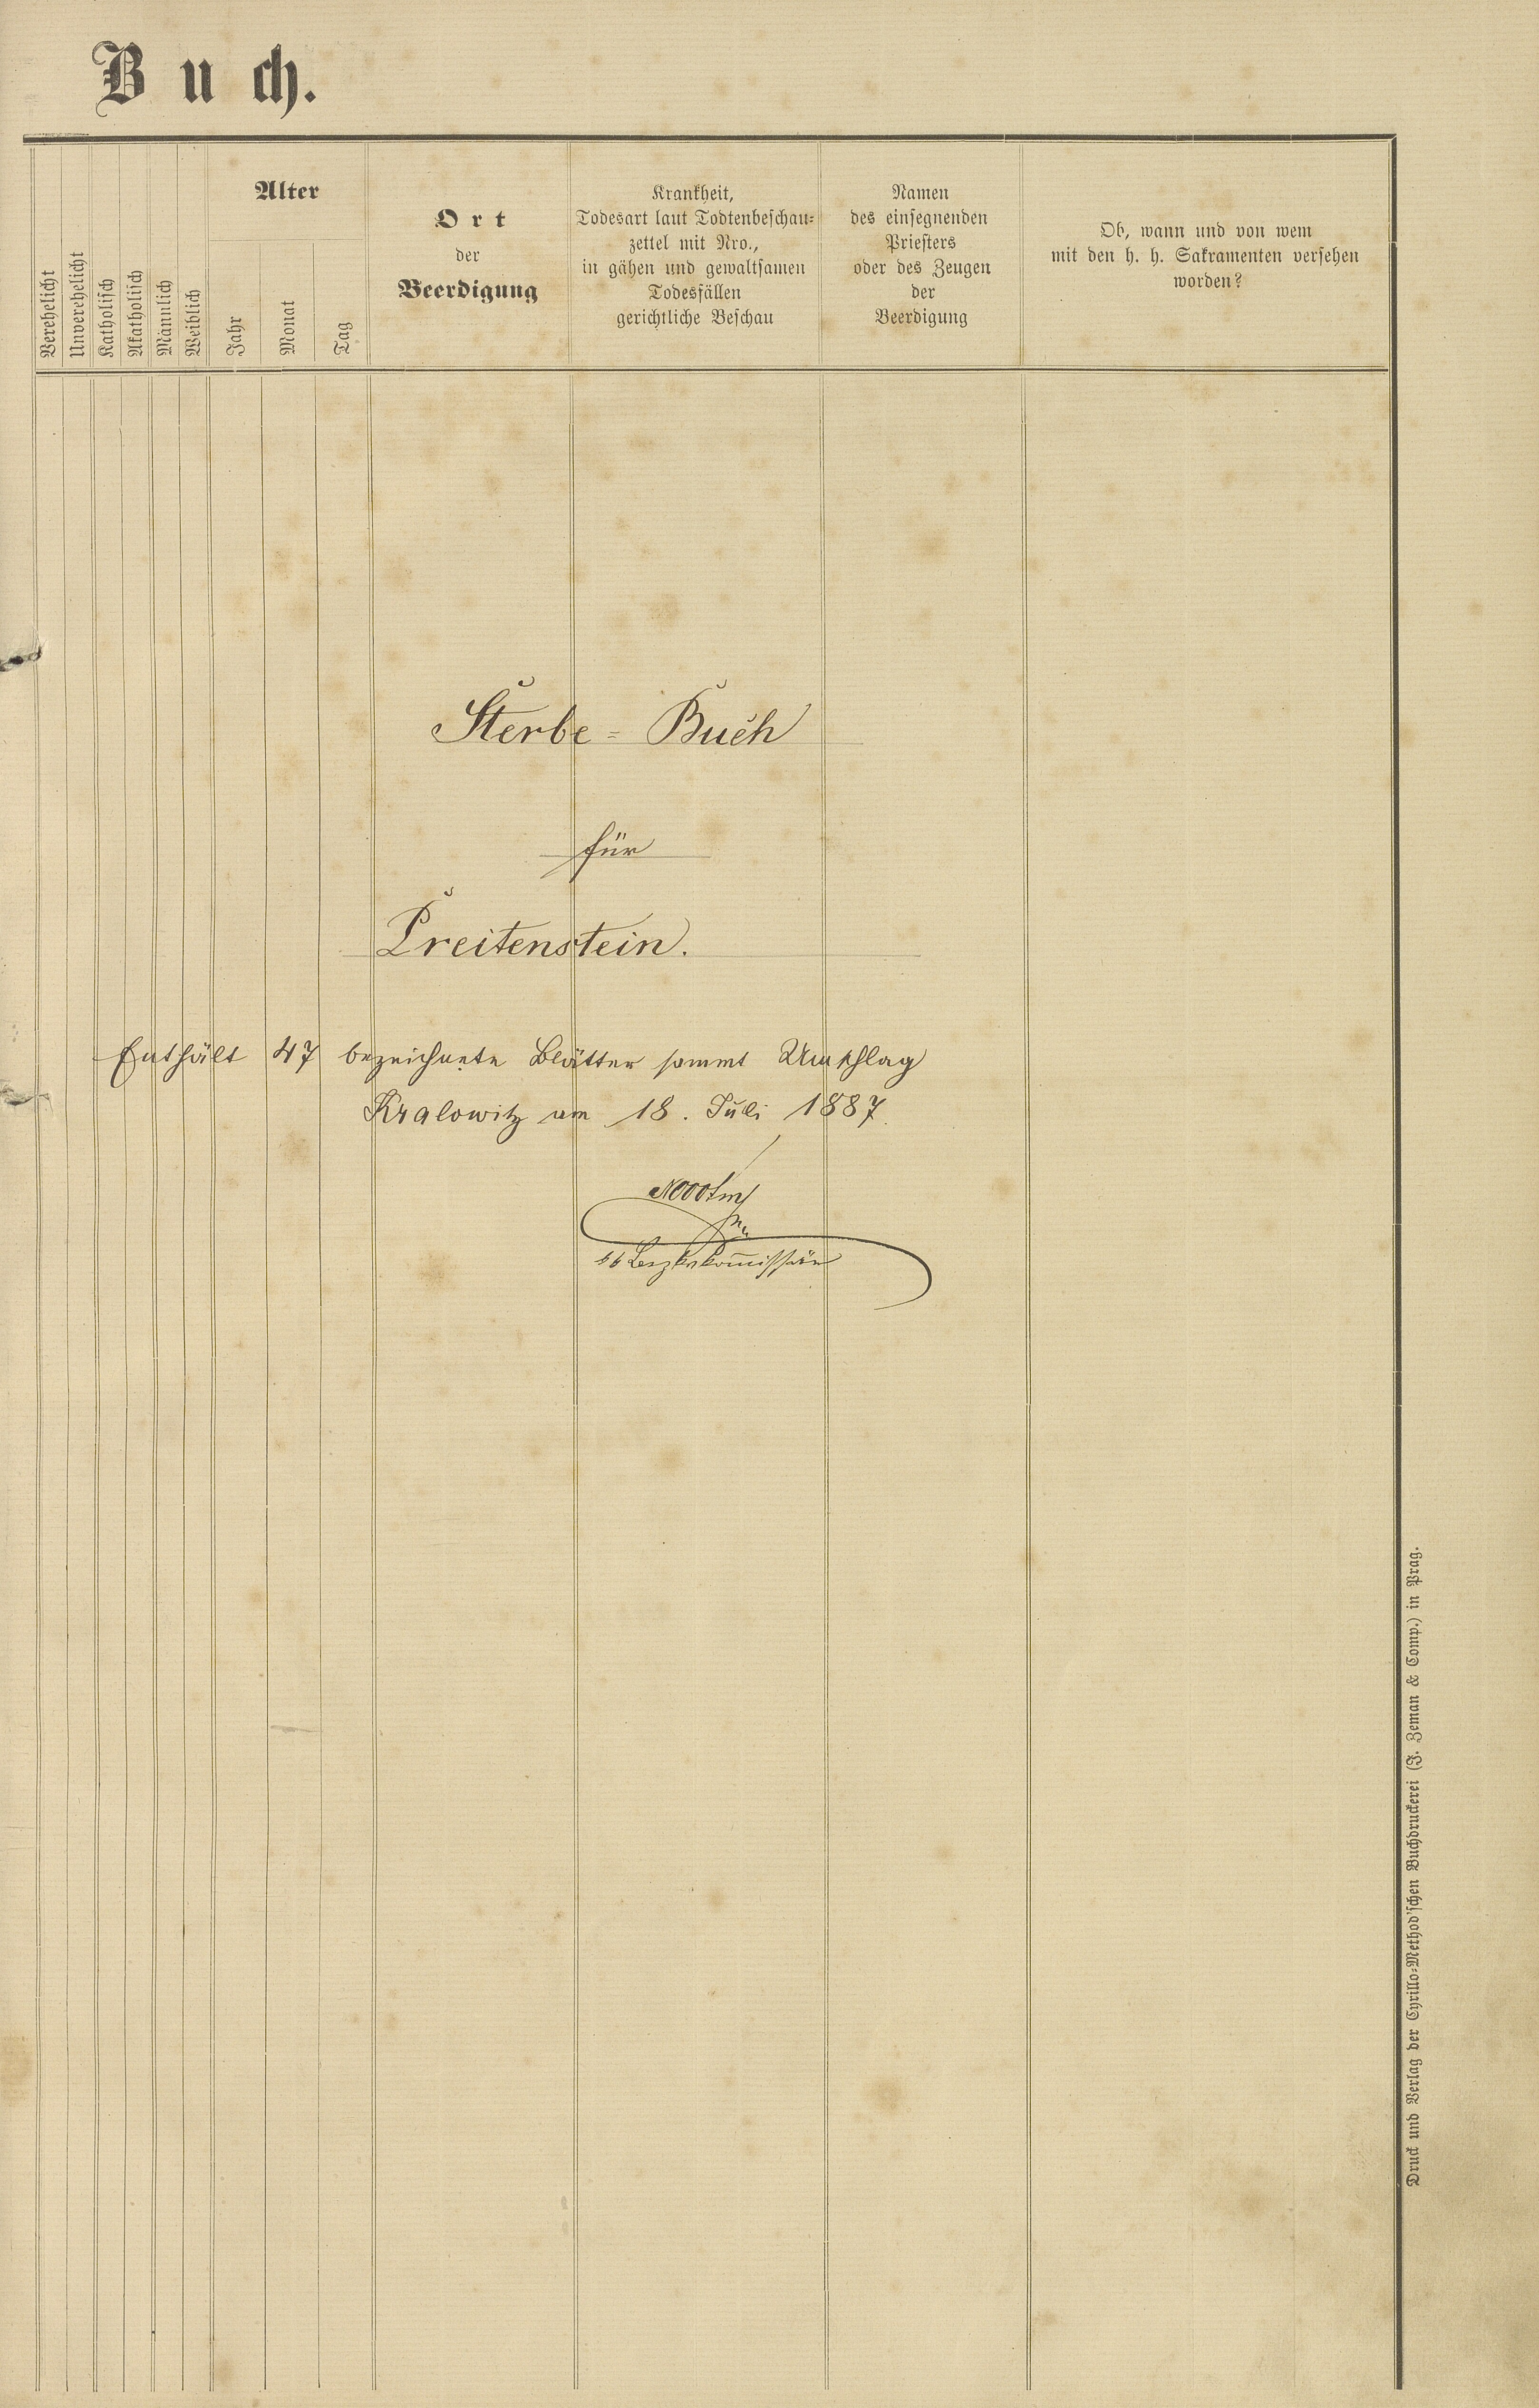 Buch.
Verehelicht
Unverehelicht
Katholisch
Akatholisch
Männlich
Weiblich
Alter
Jahr
Monat
Tag
Ort
der
Beerdigung
Krankheit,
Todesart laut Todtenbeschau-
zettel mit Nro.,
in gähen und gewaltsamen
Todesfällen
gerichtliche Beschau
Namen
des einsegnenden
Priesters
oder des Zeugen
der
Beerdigung
Ob, wann und von wem
mit den h. h. Sakramenten versehen
worden?
Sterbe = Buch
für
Preitenstein.
Enthält 47 bezeichnete Blätter sammt Umschlag
Kralowitz am 18. Juli 1887.
kk Bezirkskom̄issär
Druck und Verlag der Cyrillo-Method'schen Buchdruckerei (J. Zeman & Comp.) in Prag.